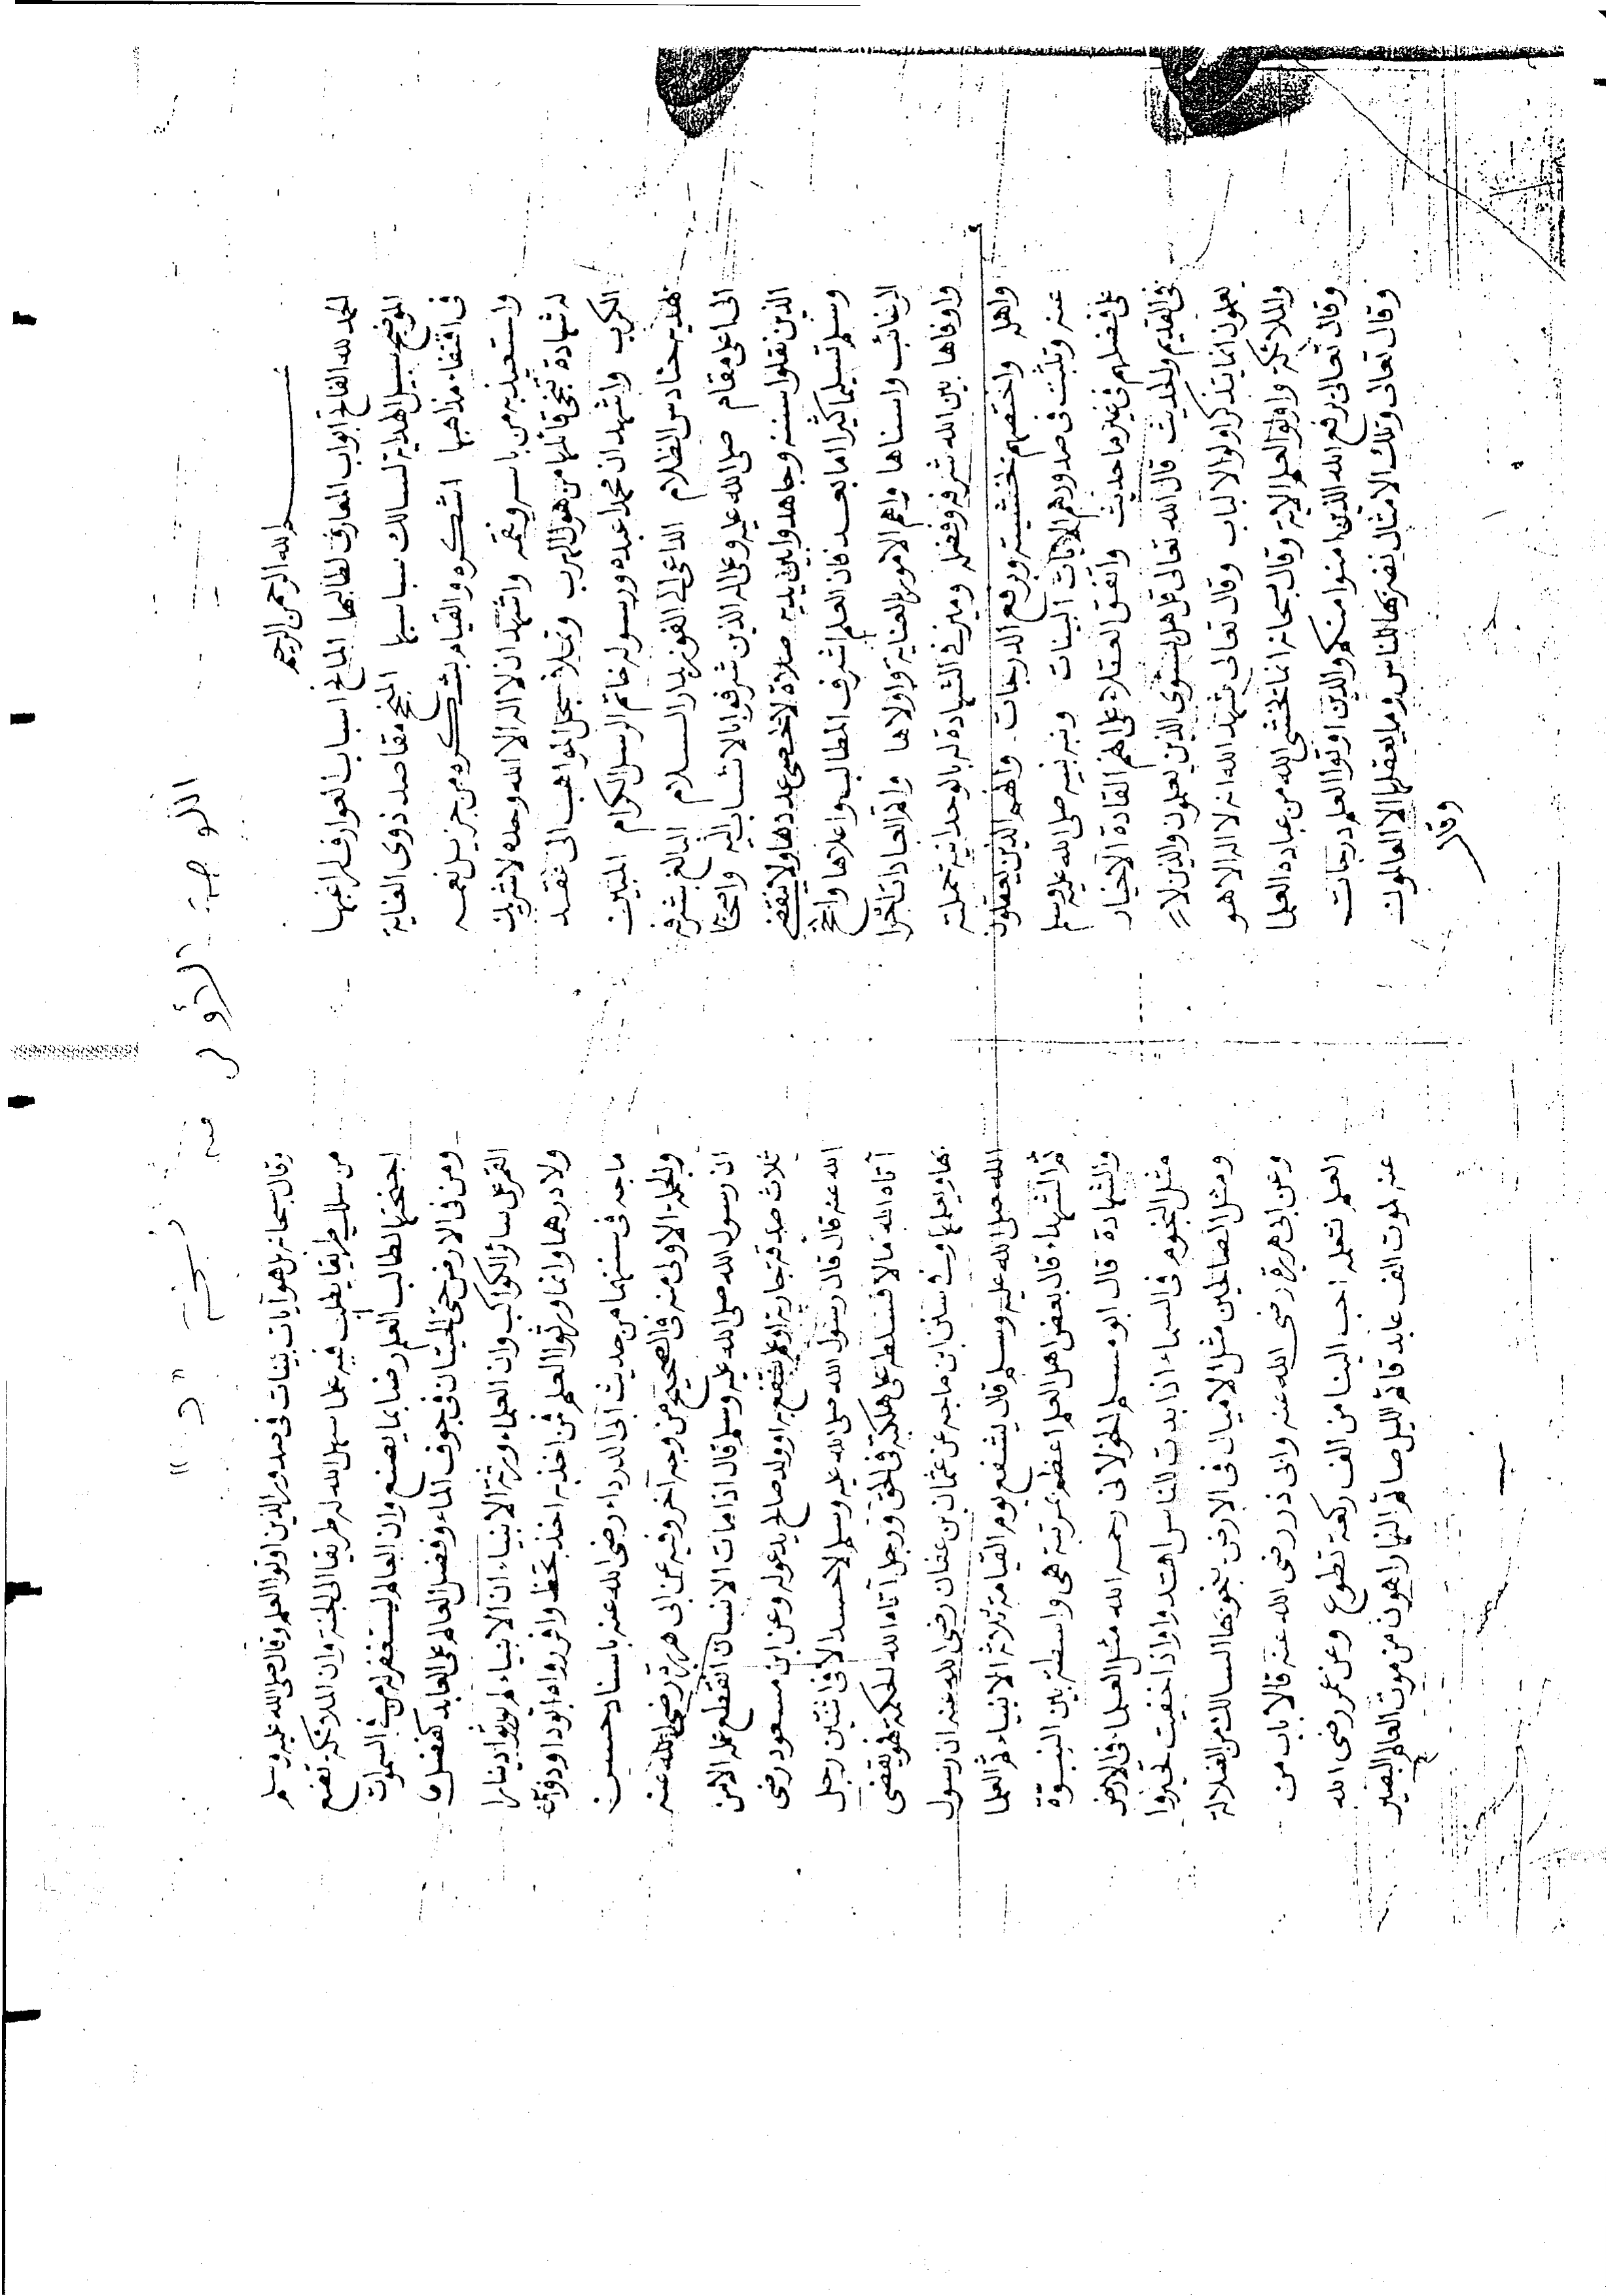 اللوحة الأولى من نسخة "د"
بسم الله الرحمن الرحيم
الحمد لله الفاتح ابواب المعارف لطالبها المانح اسباب العوارف لراغبها
الموضح سبيل الهداية لسالك سباسبها المنجح مقاصد ذوى العناية
فى اقتفاء مذاهبها اشكره والقيام بشكره من جزيل نعمه
واستعيذ به من باسه ونقمه واشهد ان لا اله الا الله وحده لا شريك
له شهادة تنجى قائلها من هول الهرب وتملأ سجل المواهب الى عقد
الكرب واشهد ان محمدا عبده ورسوله خاتم الرسل الكرام المبين
بهديه حنادس الظلام الداعى الى الفوز بدار السلام البالغ بشرفه
الى اعلى مقام صلى الله عليه وعلى اله الذين شرفوا بالانتساب اليه واصحابه
الذين نقلوا سننه وجاهدوا بين يديه صلاة لا تحصى عددها ولا ينقضى
وسلم تسليما كثيرا اما بعد فان العلم اشرف المطالب واعلاها وانجح
الرغائب واسناها واهم الامور بالعناية واولاها واتم العبادات اجرا
واوفاها بين الله شرفه وفضله وميز فى الشهادة له بالوحدانية حملته
واهله واختصهم بخشيته ورفع الدرجات وانهم الذين يعقلون
عنه وتثبت فى صدورهم الايات البينات ونبه نبيه صلى الله عليه وسلم
على فضلهم فى غير ما حديث واتفق العقلاء على انهم القادة الاخيار
فى القديم والحديث قال الله تعالى قل هل يستوى الذين يعلمون والذين لا
يعلمون انما يتذكر اولوا الالباب وقال تعالى شهد الله انه لا اله الا هو
والملائكة واولوا العلم الاية وقال سبحانه انما يخشى الله من عباده العلما
وقال تعالى يرفع الله الذين امنوا منكم والذين اوتوا العلم درجات
وقال تعالى وتلك الامثال نضربها للناس وما يعقلها الا العالمون
وقال
وقال سبحانه بل هو آيات بينات فى صدور الذين اوتوا العلم وقال صلى الله عليه وسلم
من سلك طريقا يطلب فيه علما سهل الله له طريقا الى الجنة وان الملائكة تضع
اجنحتها لطالب العلم رضا بما يصنع وان العالم ليستغفر له من فى السموات
ومن فى الارض حتى الحيتان فى جوف الماء وفضل العالم على العابد كفضل
القمر على سائر الكواكب وان العلماء ورثة الانبياء ان الانبياء لم يورثوا دينارا
ولا درهما وانما ورثوا العلم فمن اخذ به اخذ بحظ وافر رواه ابو داود وابن
ماجه فى سننهما من حديث ابى الدرداء رضى الله عنه باسناد حسن
والجملة الاولى منه فى الصحيح من وجه آخر وفيه عن ابى هريرة رضى الله عنه
ان رسول الله صلى الله عليه وسلم قال اذا مات الانسان انقطع عمله الا من
ثلاث صدقة جارية او علم ينتفع به او ولد صالح يدعو له وعن ابن مسعود رضى
الله عنه قال قال رسول الله صلى الله عليه وسلم لا حسد الا فى اثنتين رجل
آتاه الله مالا فسلطه على هلكته فى الحق ورجل آتاه الله الحكمة فهو يقضى
بها ويعلمها وفى سنن ابن ماجه عن عثمان بن عفان رضى الله عنه ان رسول
الله صلى الله عليه وسلم قال يشفع يوم القيامة ثلاثة الانبياء ثم العلما
ثم الشهداء قال بعض اهل العلم اعظم بمرتبة هى واسطة بين النبوة
والشهادة قال ابو مسلم الخولانى رحمه الله مثل العلما فى الارض
مثل النجوم فى السماء اذا بدت للناس اهتدوا واذا خفيت تحيروا
ومثل الصالحين مثل الاميال فى الارض ينجو بها السالك من الضلالة
وعن ابى هريرة رضى الله عنه وابى ذر رضى الله عنه قالا باب من
العلم نتعلمه احب الينا من الف ركعة تطوع وعن عمر رضى الله
عنه لموت الف عابد قائم الليل صائم النهار اهون من موت العالم البصير